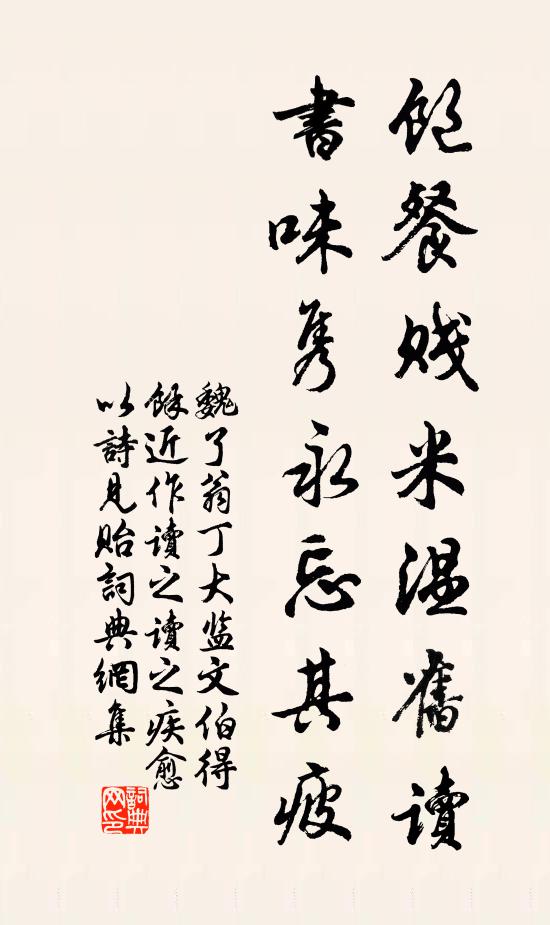 飽餐賤米温舊讀
書味雋永忘其疲
魏了翁丁大监文伯得
餘近作讀之讀之疾愈
以詩見貽詞典網集
詞典
网印